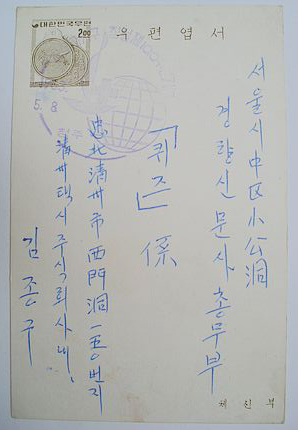 대한민국우표
2.00
우편엽서
5. 8
청주
서울시 中区 小公洞
경향신문사 총무부
「퀴즈」 係
忠北 清州市 西門洞 一五○번지
清州택시 주식회사 내
김종구
체신부